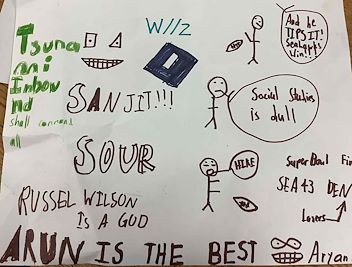 Tsuna
mi
Inbou
nd
shall command
all
W//z
And he
TIPS IT!
Seahawks
Win!!!
SANJIT!!!
Social Studies
is dull
SOUR
HIKE
Super Bowl Fin
SEA 43 DEN
Losers
RUSSEL WILSON
IS A GOD
ARUN IS THE BEST
Aryan